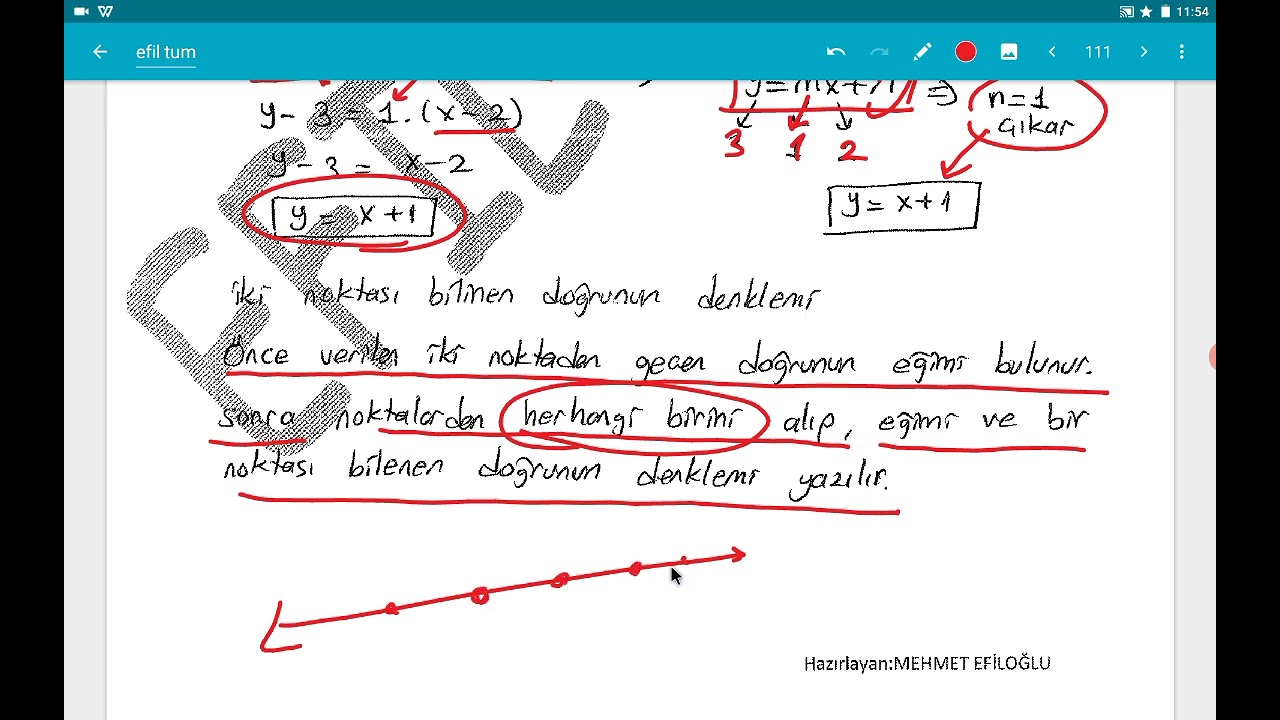 11:54
efil tum
111
y - 3 = 1 . (x - 2)
y = mx + n ⇒ n = 1 çıkar
3 1 2
y - 3 = x - 2
y = x + 1
y = x + 1
iki noktası bilinen doğrunun denklemi
Önce verilen iki noktadan geçen doğrunun eğimi bulunur.
sonra noktalardan herhangi birini alıp, eğimi ve bir
noktası bilenen doğrunun denklemi yazılır.
Hazırlayan:MEHMET EFİLOĞLU